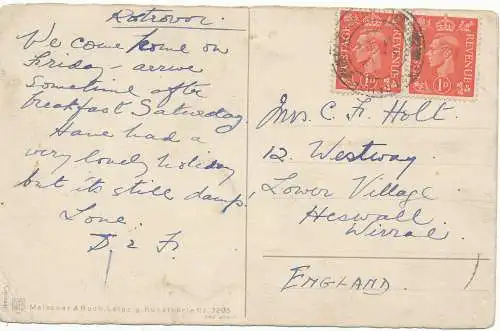 Rotrovor.
We come home on
Friday - arrive
sometime after
breakfast Saturday
Have had a
very lovely holiday
but its still damp!
Love.
D & F.
Meissner & Buch, Leipzig, Kunstserie Nr. 3205
POSTAGE REVENUE
1D
POSTAGE REVENUE
1D
Mrs. C. F. Holt.
12. Westway.
Lower Village
Heswall
Wirral
ENGLAND.